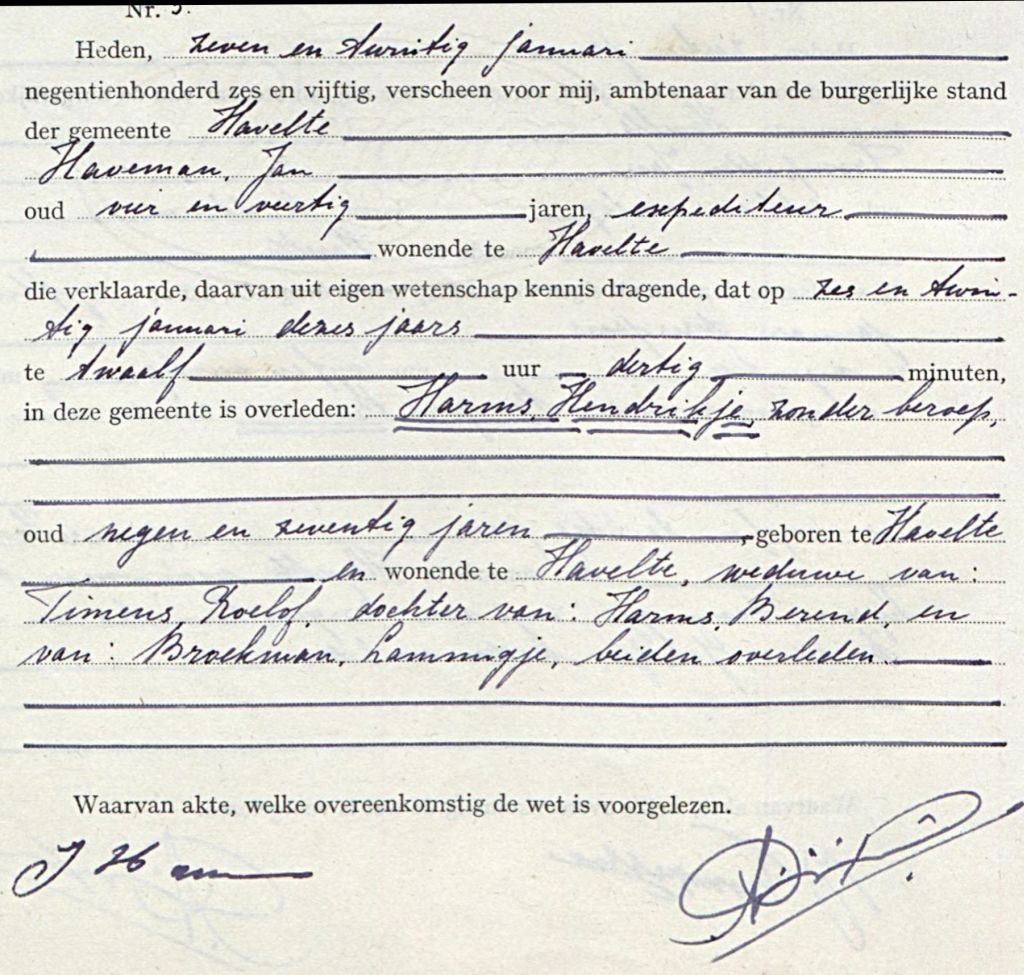 Nr. 3.
Heden, zeven en twintig januari
negentienhonderd zes en vijftig, verscheen voor mij, ambtenaar van de burgerlijke stand
der gemeente Havelte
Haveman, Jan
oud vier en veertig jaren, expediteur
wonende te Havelte
die verklaarde, daarvan uit eigen wetenschap kennis dragende, dat op zes en twin-
tig januari dezes jaars
te twaalf uur dertig minuten,
in deze gemeente is overleden: Harms, Hendrikje, zonder beroep,
oud negen en zeventig jaren, geboren te Havelte
en wonende te Havelte, weduwe van:
Timens, Roelof, dochter van: Harms, Berend, en
van: Broekman, Lammigje, beiden overleden.
Waarvan akte, welke overeenkomstig de wet is voorgelezen.